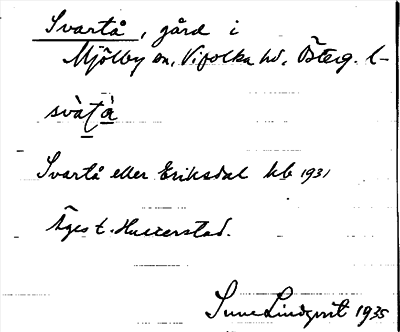 Svartå, gård i
Mjölby sn, Vifolka hd, Österg. l-
svàt̠à̠
Svartå eller Eriksdal kb 1931
Äges t. Hulterstad.
Sune Lindqvist 1935